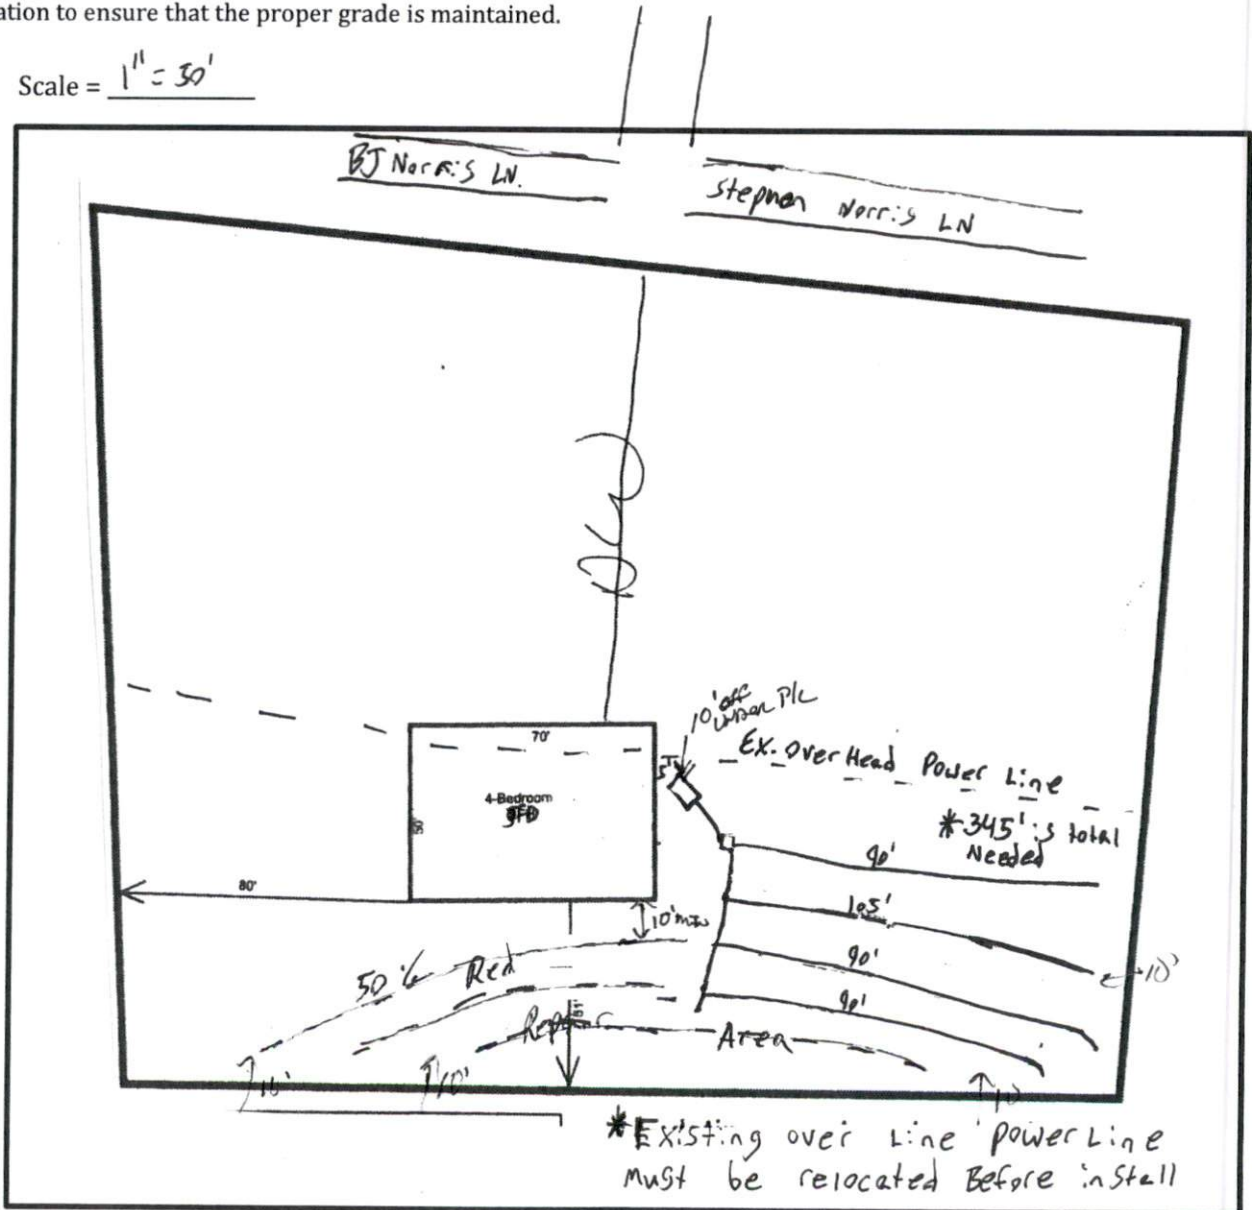 ation to ensure that the proper grade is maintained.
Scale = 1" = 50'
BJ Norris LN.
Stephen Norris LN
10' off
P/L
Ex. Over Head Power Line
70'
5'
4-Bedroom
SFD
50'
*345' is total
Needed
90'
80'
105'
10' min
90'
10'
50% Red
90'
Repair Area
10'
10'
10'
*Existing over Line power Line
Must be relocated Before install